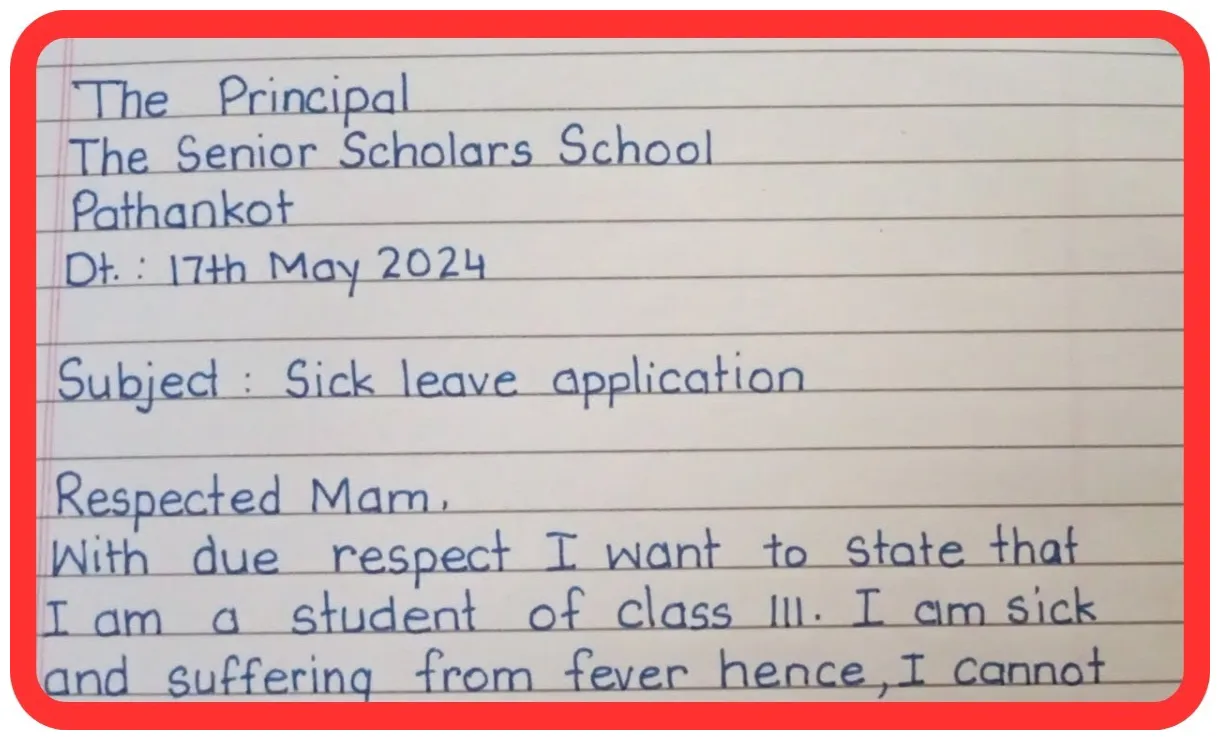 The Principal
The Senior Scholars School
Pathankot
Dt. : 17th May 2024
Subject : Sick leave application
Respected Mam,
With due respect I want to state that
I am a student of class III. I am sick
and suffering from fever hence, I cannot